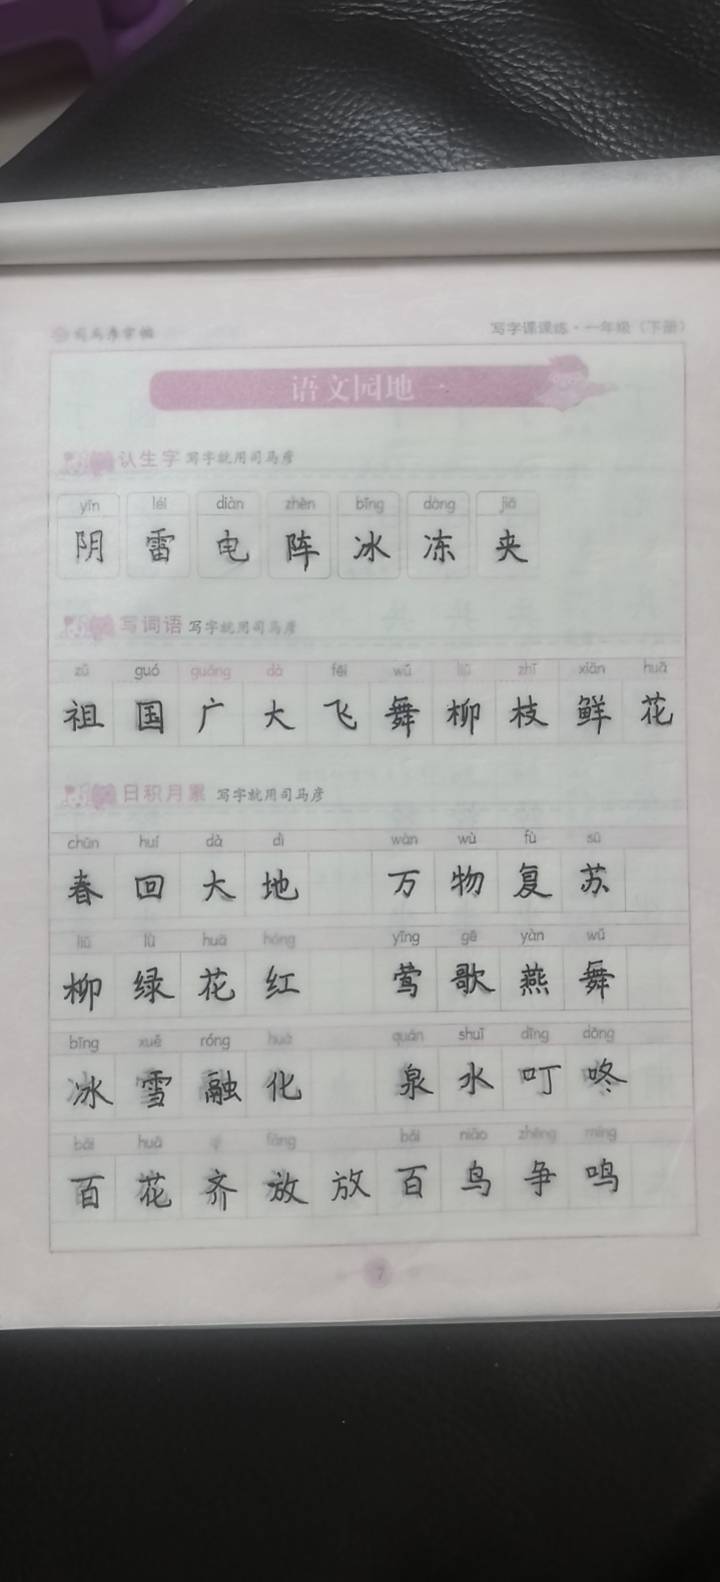 司马彦字帖 写字课课练·一年级（下册）
语文园地一
认生字 写字就用司马彦
yīn léi diàn zhèn bīng dòng jiā
阴 雷 电 阵 冰 冻 夹
写词语 写字就用司马彦
zǔ guó guǎng dà fēi wǔ liǔ zhī xiān huā
祖 国 广 大 飞 舞 柳 枝 鲜 花
日积月累 写字就用司马彦
chūn huí dà dì wàn wù fù sū
春 回 大 地 万 物 复 苏
liǔ lǜ huā hóng yīng gē yàn wǔ
柳 绿 花 红 莺 歌 燕 舞
bīng xuě róng huà quán shuǐ dīng dōng
冰 雪 融 化 泉 水 叮 咚
bǎi huā qí fàng bǎi niǎo zhēng míng
百 花 齐 放 放 百 鸟 争 鸣
7